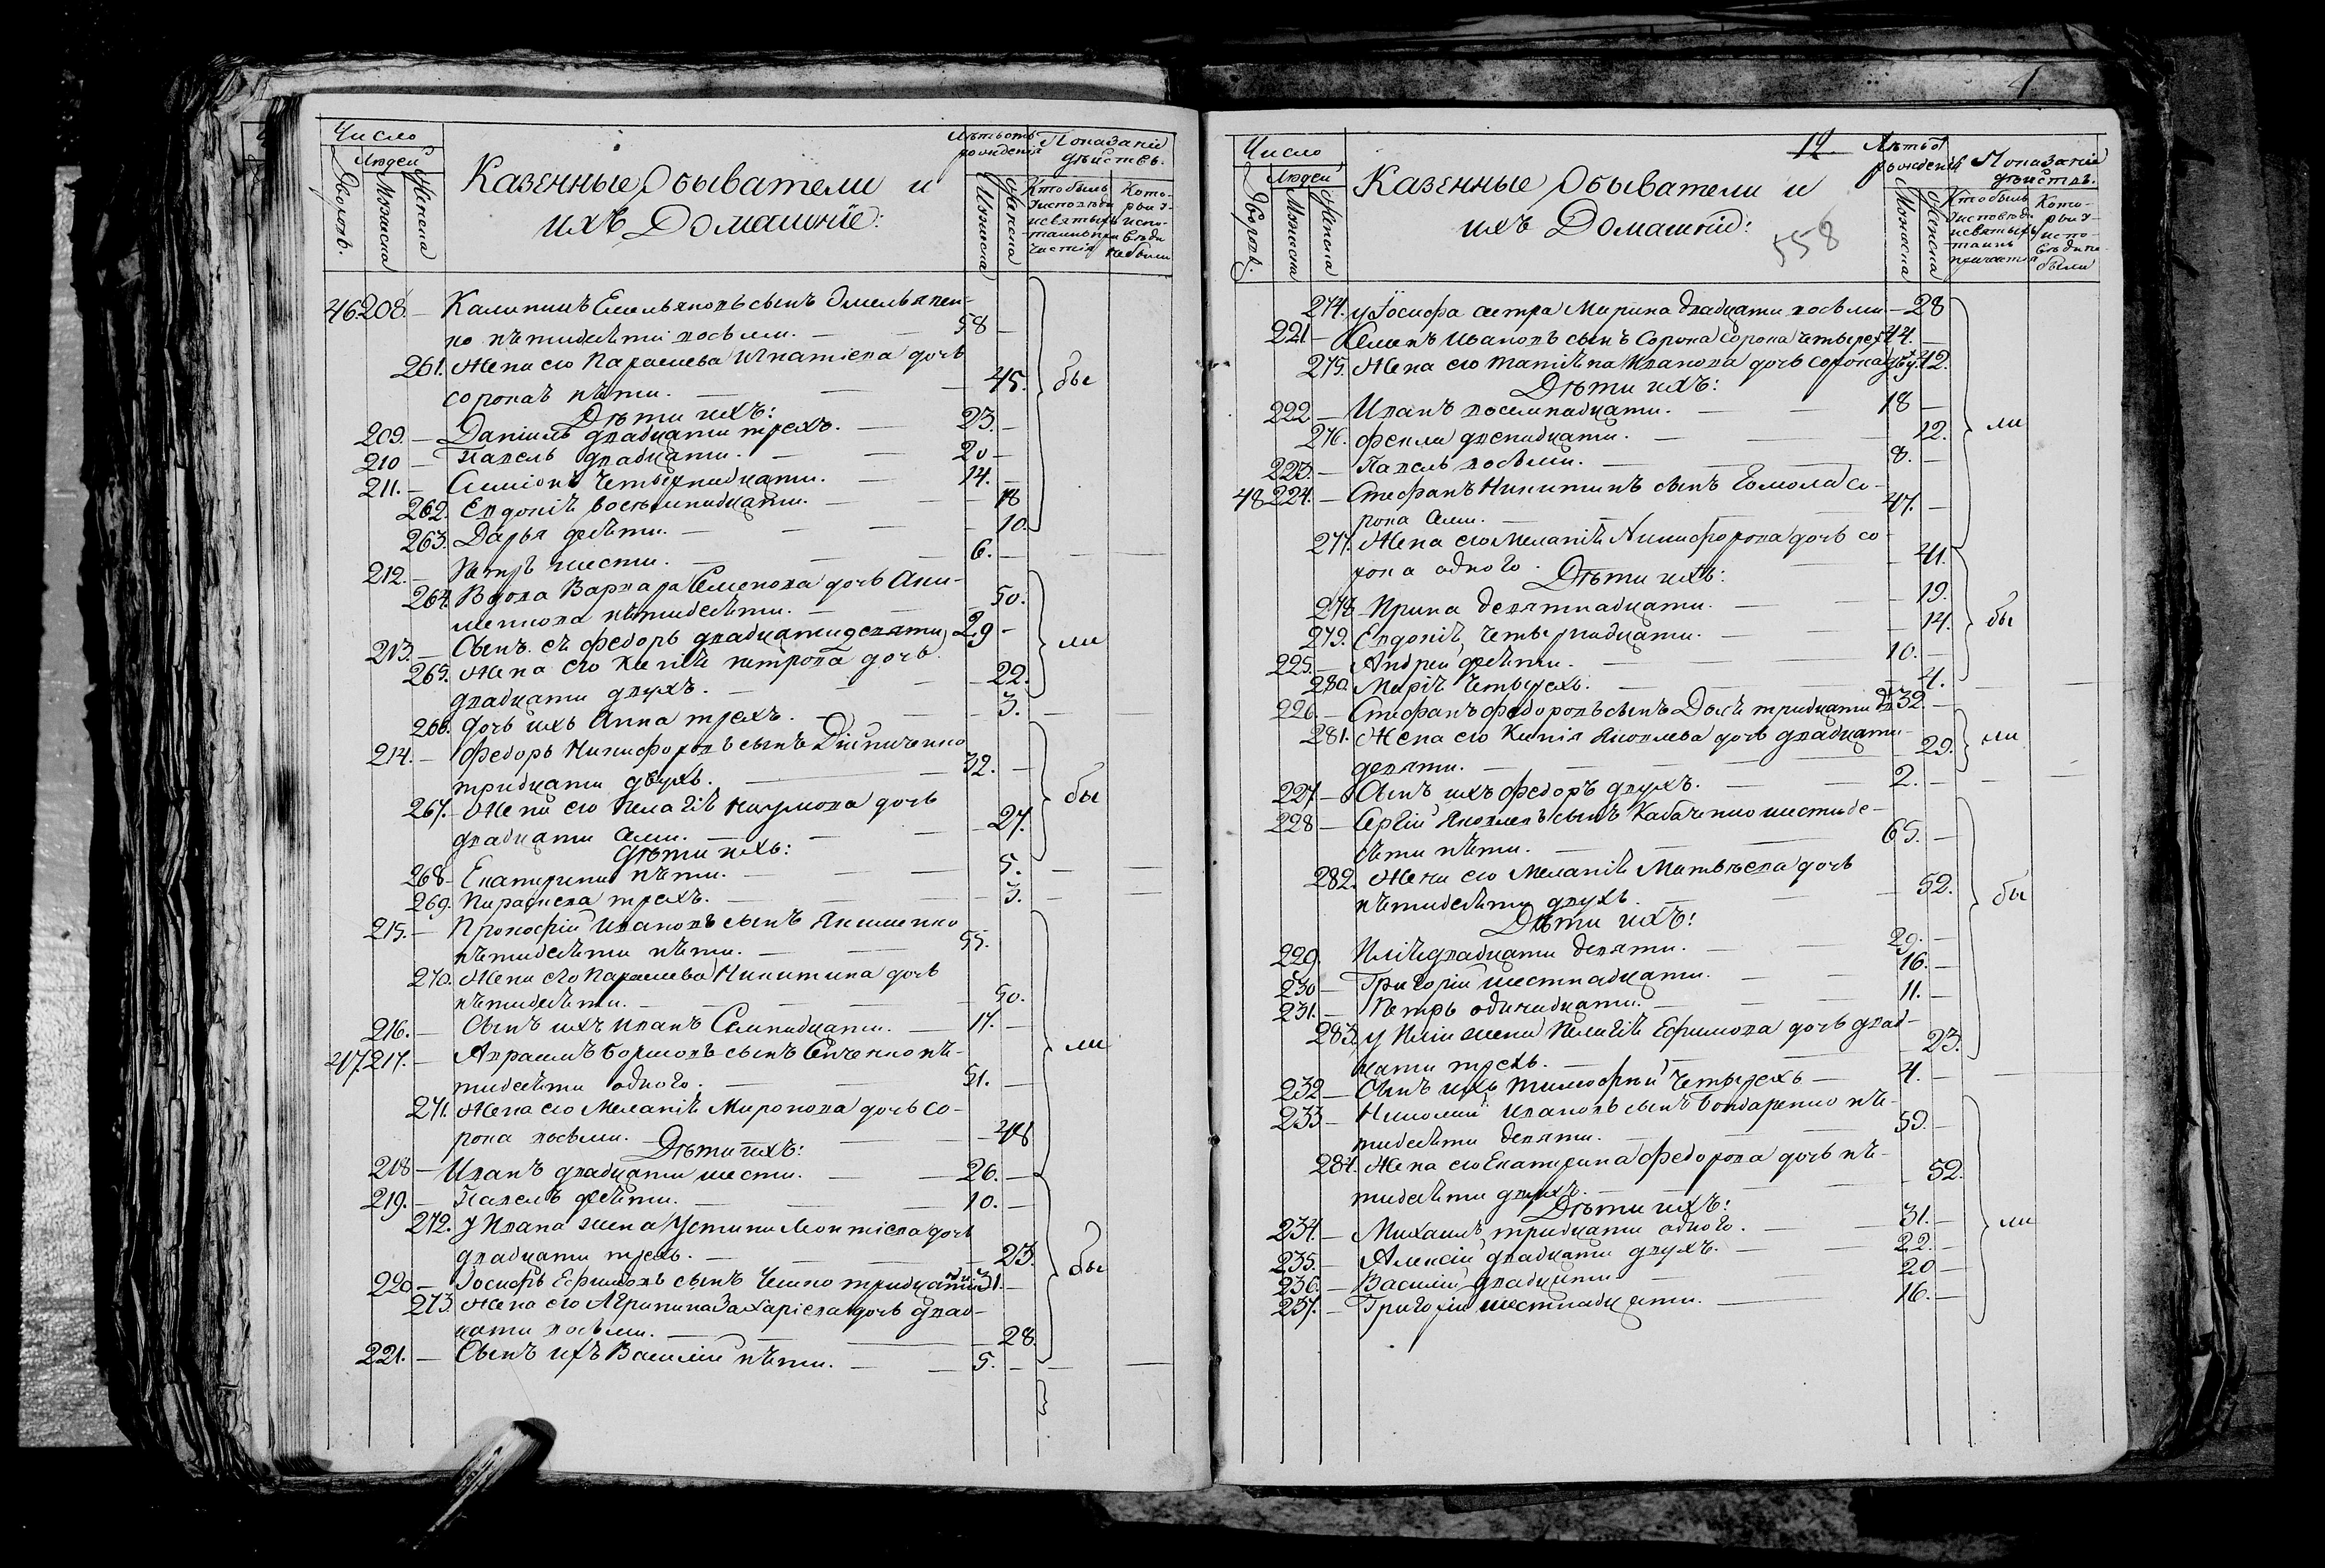 Число
Людей
Дворовъ.
Мужеска
Женска
Казенные Обыватели и
ихъ Домашніе:
Лѣтъ отъ
рожденія
Мужеска
Женска
Показаніе
дѣйствъ.
Кто былъ
у исповѣди
и святыхъ
таинъ при
частія
Кото-
рые у
испо-
вѣди
не были
46. 208. — Емельяновъ сынъ Омельянен-
ко пѣтидесѣти восьми. — 58 —
261. Жена его Параскева Игнатіева дочь
сорокъ пѣти. — 45.
бы
Дѣти ихъ:
209. — Даніилъ двадцати трехъ. — 23. —
210 — Павелъ двадцати. — 20 —
211. — Симіонъ четырнадцати. — 14. —
262. Евдокіѣ восѣмнадцати. — 18
263. Дарья десѣти. — 10.
212. — Петръ шести. — 6. —
264. Вдова Варвара Семенова дочь Аки-
менкова пѣтидесѣти. — 50.
213. — Сынъ еѣ Федоръ двадцати девяти 29 —
ли
265. Жена его Ксеніѣ Петрова дочь
двадцати двухъ. — 22.
266. Дочь ихъ Анна трехъ. — 3.
214. — Федоръ Никифоровъ сынъ
тридцати двухъ. — 32. —
267. Жена его Пелагіѣ Наумова дочь
двадцати семи. — 27.
бы
Дѣти ихъ:
268 Екатерина пѣти. — 5. —
269. Параскева трехъ. — 3. —
215. — Прокофій Ивановъ сынъ Якименко
пѣтидесѣти пѣти. — 55.
270. Жена его Параскева Никитина дочь
пѣтидесѣти. — 50.
216. — Сынъ ихъ Иванъ Семнадцати. — 17. —
ли
47. 217. — Авраамъ сынъ пѣ-
тидесѣти одного. — 51. —
271. Жена его Меланіѣ Миронова дочь со-
рока восьми. — 48
Дѣти ихъ:
218 — Иванъ двадцати шести. — 26. —
219. — Павелъ десѣти. — 10. —
272. У Ивана жена Устинія дочь
двадцати трехъ. — 23.
бы
220. — Іосифъ Ефимовъ сынъ тридцати одн. 31. —
273. Жена его Агрипина Захаріева дочь двад-
цати восьми. — 28.
221. — Сынъ ихъ Василій пѣти. — 5. —
1
12
Число
Людей
Дворов.
Мужеска
Женска
Казенные Обыватели и
ихъ Домашніе:
558
Лѣтъ от
рожденія
Мужеска
Женска
Показаніе
дѣйствъ.
Кто былъ
у исповѣди
и святыхъ
таинъ
причастія
Кото-
рые у
испо-
вѣди не
были
274. у Іосифа сестра Марина двадцати восьми — 28
221 — Семенъ Ивановъ сынъ Сорока сорока четырех 44. —
275. Жена его Татіѣна Иванова дочь сорока двух. 42.
Дѣти ихъ:
222 — Иванъ восемнадцати. — 18 —
276. Фекла двенадцати. — 12.
ли
223. — Павелъ восьми. — 8. —
48 224. — Стефанъ Никитинъ сынъ Ермола со-
рока семи. — 47. —
277. Жена его Меланіѣ Никифорова дочь со-
рока одного. — 41.
Дѣти ихъ:
278 Ирина девятнадцати. — 19.
279. Евдокіѣ четырнадцати. — 14.
бы
225. — Андрей десѣти. — 10. —
280. Маріѣ четырехъ. — 4.
226. — Стефанъ Федоровъ сынъ тридцати дв. 32. —
281. Жена его Ксенія Яковлева дочь двадцати
девяти. — 29.
ли
227 — Сынъ ихъ Федоръ двухъ. — 2. —
228 — Сергій Яковлевъ сынъ Кабаченко шестиде-
сѣти пѣти. — 65. —
282. Жена его Меланіѣ Матвѣева дочь
пѣтидесѣти двухъ. — 52.
бы
Дѣти ихъ:
229. Иліѣ двадцати девяти. — 29. —
230 — Григорій шестнадцати. — 16. —
231. — Петръ одинадцати. — 11. —
283. у Иліи жена Пелагіѣ Ефимова дочь двад-
цати трехъ. — 23.
232 — Сынъ ихъ Тимофѣй четырехъ — 4. —
233 — Николай Ивановъ сынъ Бондаренко пѣ-
тидесѣти девяти. — 59. —
284. Жена его Екатерина Федорова дочь пѣ-
тидесѣти двухъ. — 52.
Дѣти ихъ:
234. — Михаилъ тридцати одного. — 31. —
ли
235. — Алексій двадцати двухъ. — 22. —
236. — Василій двадцати — 20 —
237. — Григорій шестнадцати. — 16. —